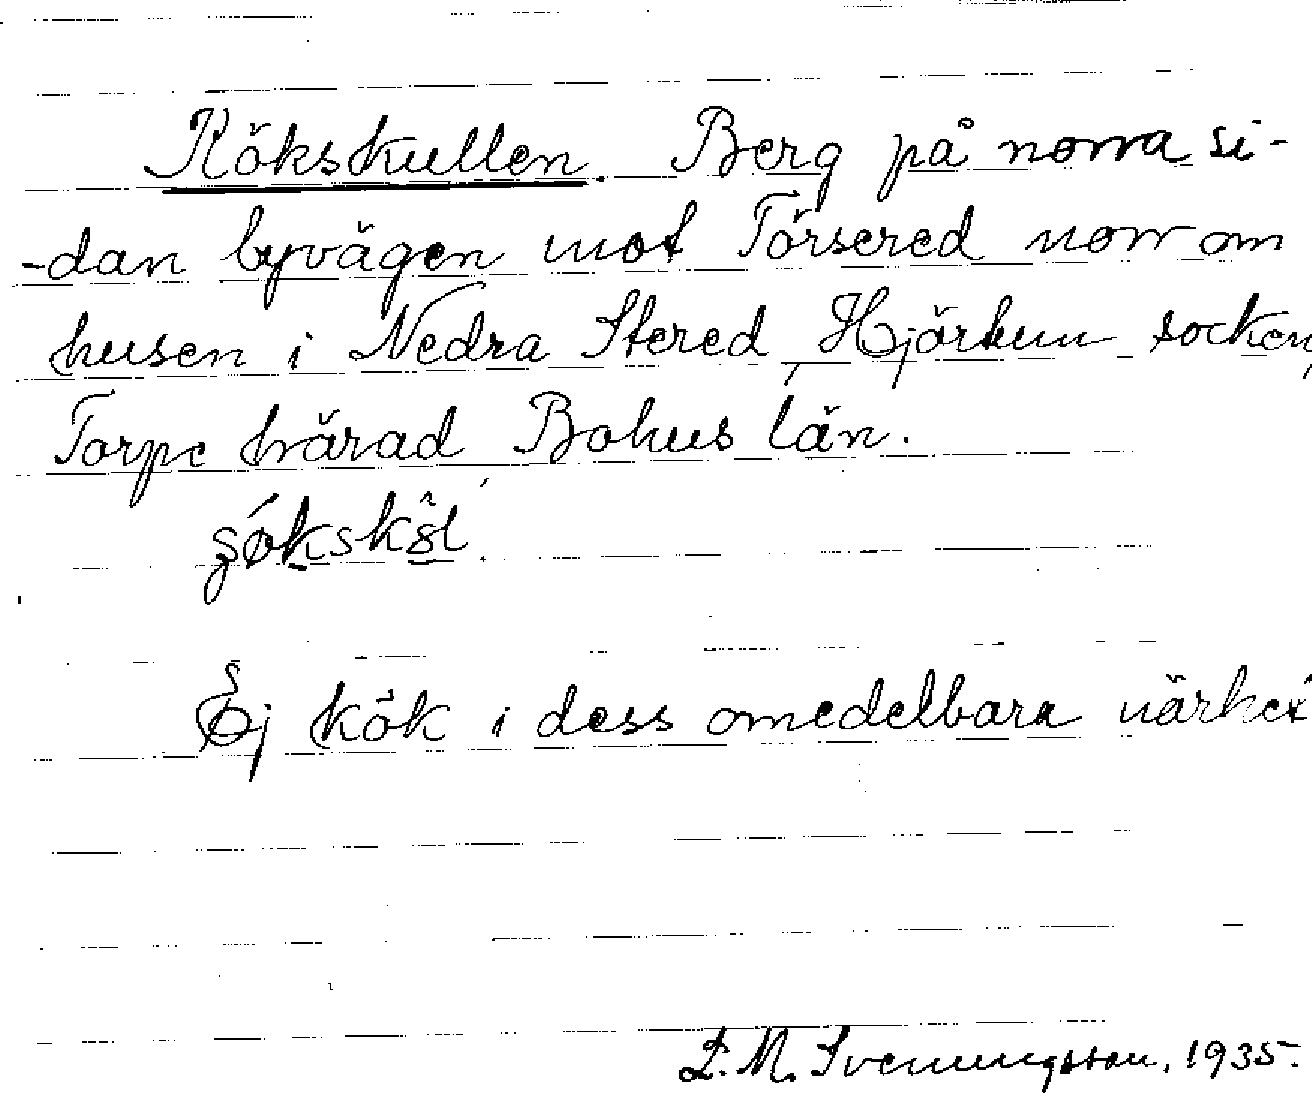 Kökskullen. Berg på norra si-
-dan byvägen mot Törsered norr om
husen i Nedra Stered, Hjärtum socken,
Torpe härad Bohus län.
Ej kök i dess omedelbara närhet
D. M. Svenningsson, 1935.